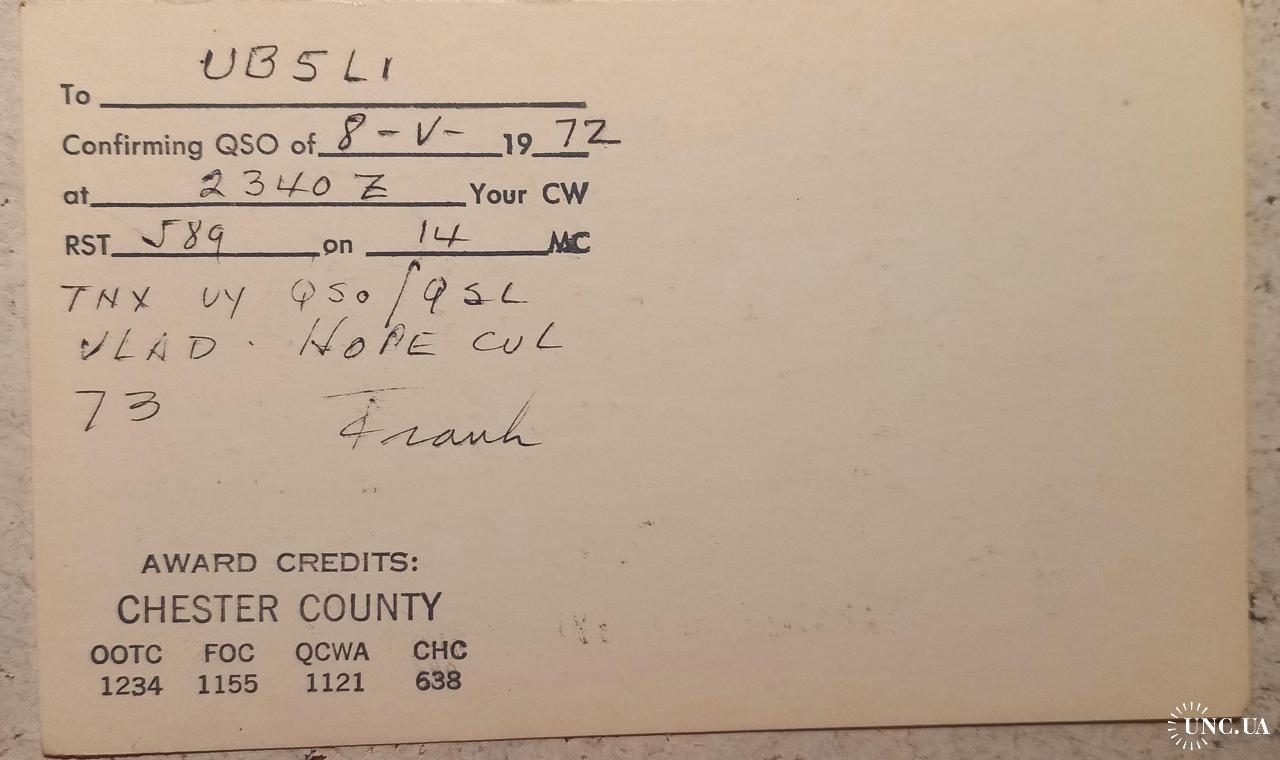 To UB5LI
Confirming QSO of 8-V- 1972
at 2340 Z Your CW
RST 589 on 14 MC
TNX UY QSO/QSL
VLAD. HOPE CUL
73 Frank
AWARD CREDITS:
CHESTER COUNTY
OOTC FOC QCWA CHC
1234 1155 1121 638
UNC.UA